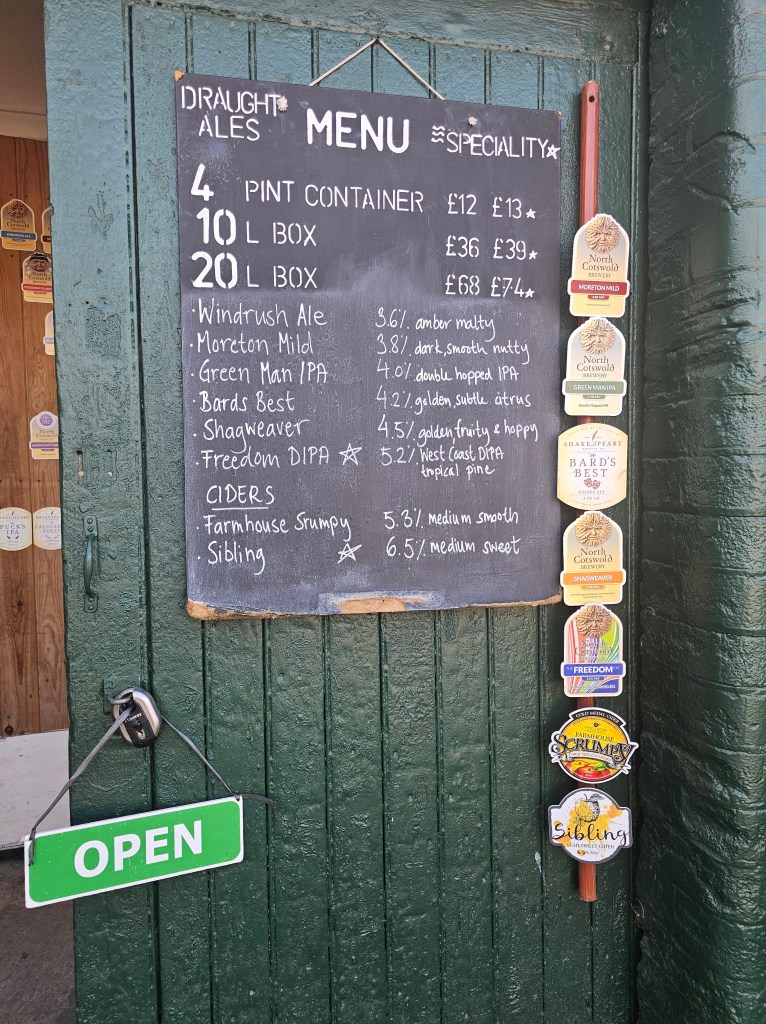 DRAUGHT
ALES
MENU
SPECIALITY
4 PINT CONTAINER £12 £13
10 L BOX £36 £39
20 L BOX £68 £74
Windrush Ale 3.6% amber malty
Moreton Mild 3.8% dark, smooth nutty
Green Man IPA 4.0% double hopped IPA
Bards Best 4.2% golden, subtle citrus
Shagweaver 4.5% golden fruity & hoppy
Freedom DIPA 5.2% West Coast DIPA
tropical pine
CIDERS
Farmhouse Srumpy 5.3% medium smooth
Sibling 6.5% medium sweet
North
Cotswold
BREWERY
MORETON MILD
North
Cotswold
BREWERY
GREEN MAN IPA
SHAKESPEARE
BARD'S
BEST
GOLDEN ALE
North
Cotswold
BREWERY
SHAGWEAVER
North
Cotswold
FREEDOM
GOLD MEDAL CIDER
FARMHOUSE
SCRUMPY
Sibling
OPEN
PUCK'S
IPA